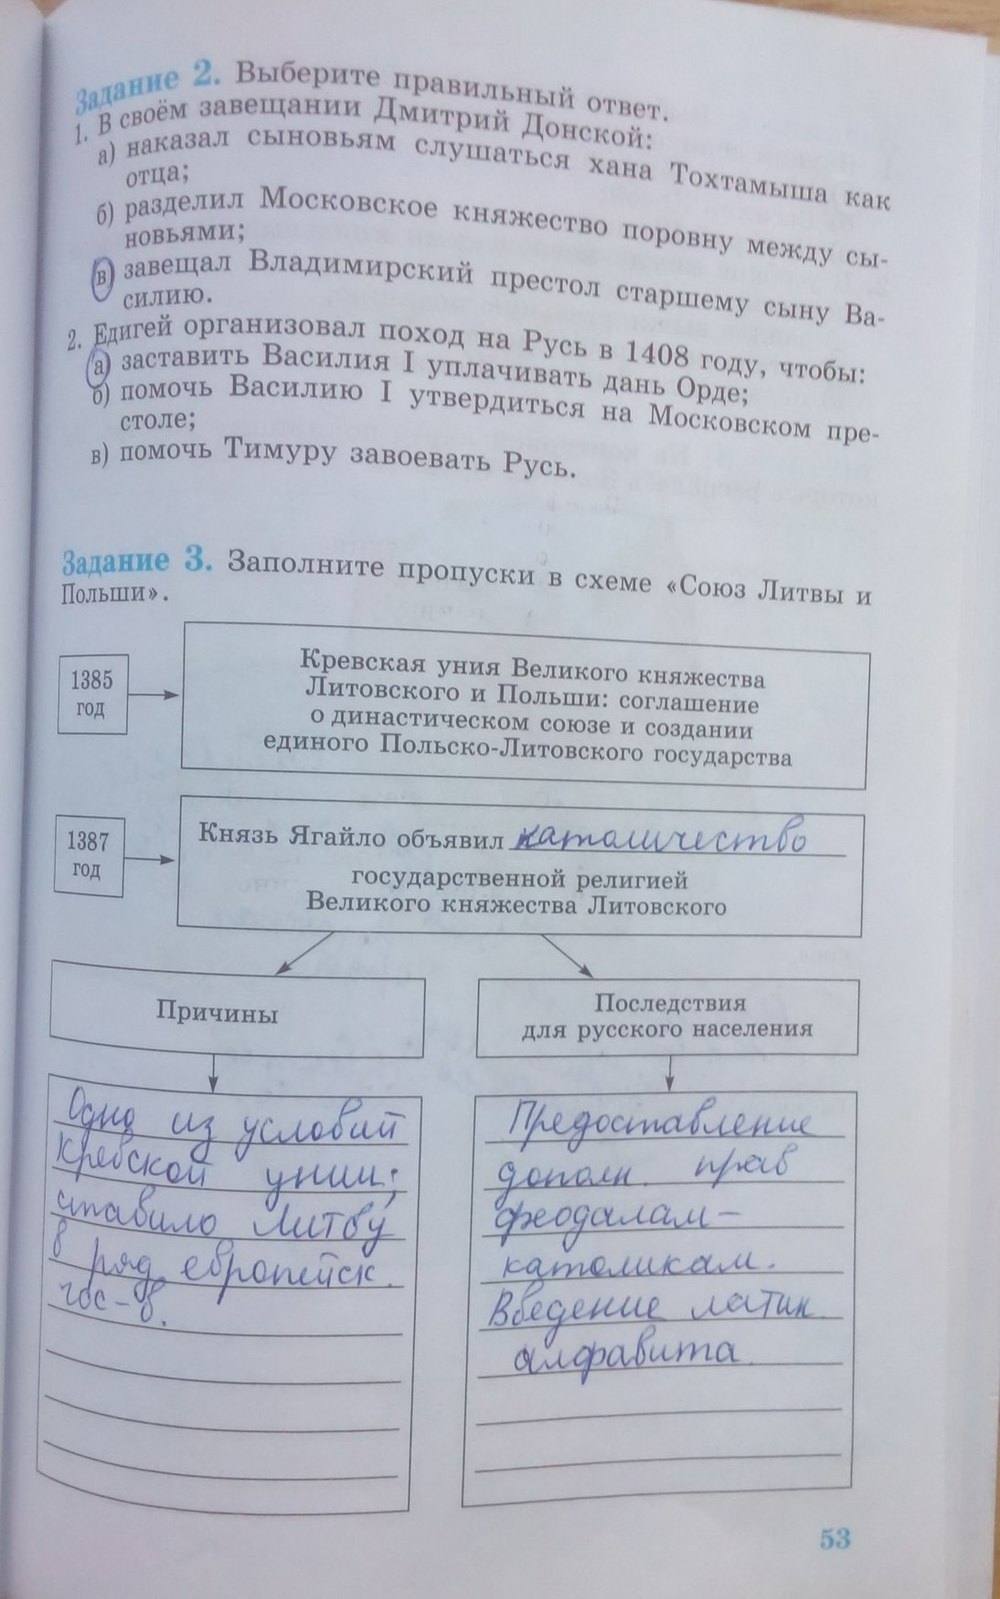 Задание 2. Выберите правильный ответ.
1. В своём завещании Дмитрий Донской:
а) наказал сыновьям слушаться хана Тохтамыша как
отца;
б) разделил Московское княжество поровну между сы-
новьями;
в) завещал Владимирский престол старшему сыну Ва-
силию.
2. Едигей организовал поход на Русь в 1408 году, чтобы:
а) заставить Василия I уплачивать дань Орде;
б) помочь Василию I утвердиться на Московском пре-
столе;
в) помочь Тимуру завоевать Русь.
Задание 3. Заполните пропуски в схеме «Союз Литвы и
Польши».
1385
год
Кревская уния Великого княжества
Литовского и Польши: соглашение
о династическом союзе и создании
единого Польско-Литовского государства
1387
год
Князь Ягайло объявил католичество
государственной религией
Великого княжества Литовского
Причины
Одно из условий
Кревской унии;
ставило Литву
в ряд европейск.
гос-в.
Последствия
для русского населения
Предоставление
дополн. прав
феодалам-
католикам.
Введение латин.
алфавита
53